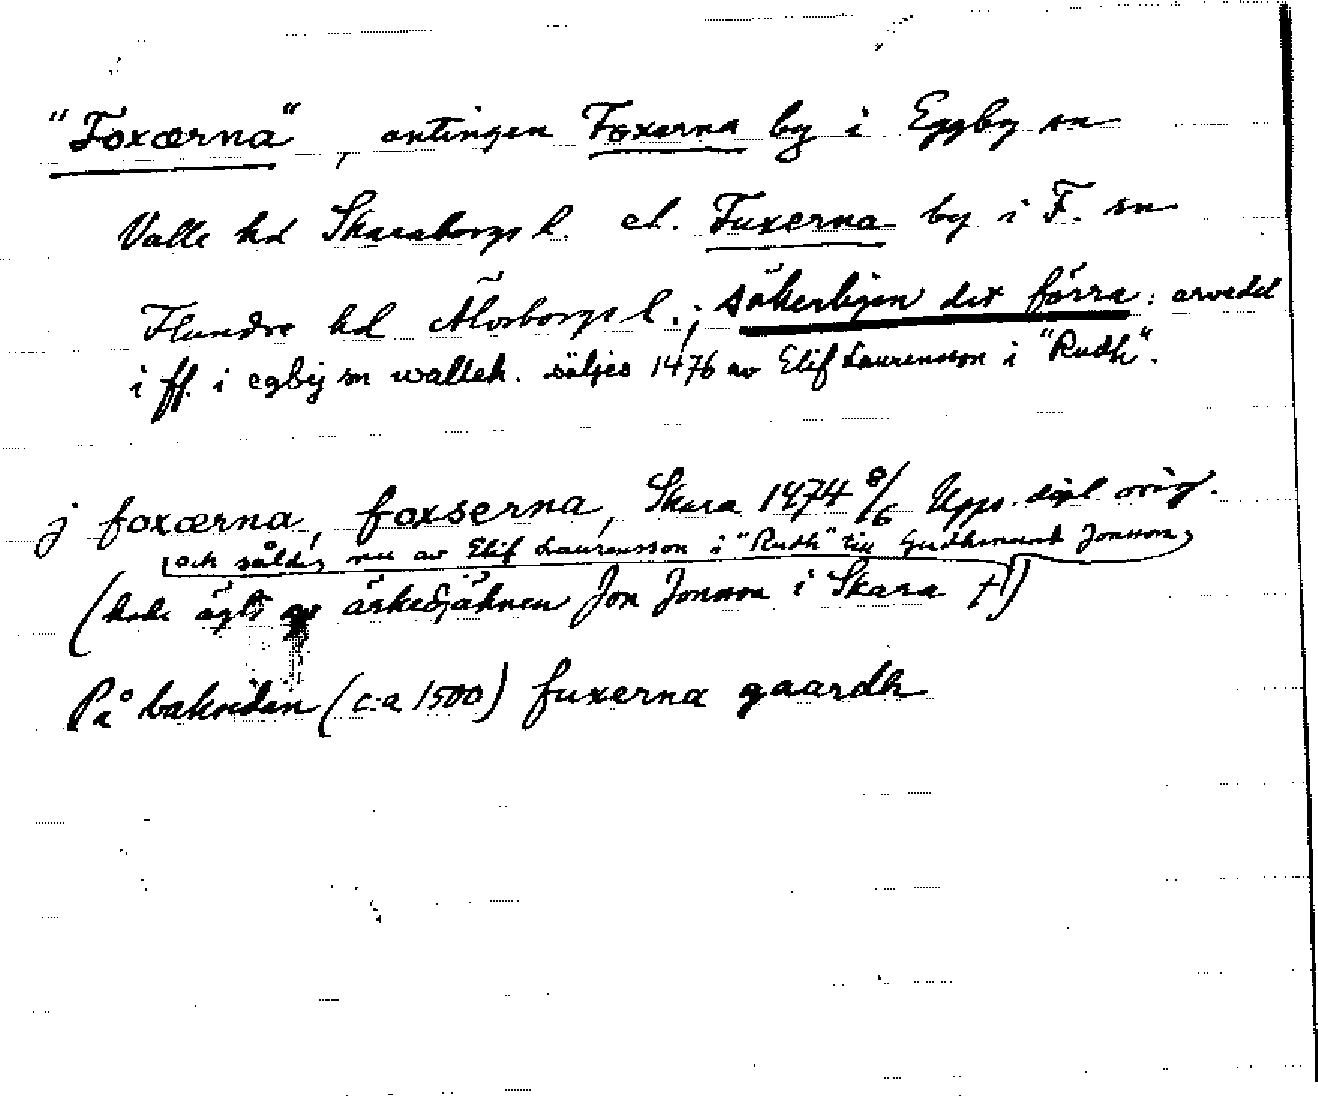 "Foxærna", antingen Foxerna by i Eggby sn
Valle hd Skaraborgs l. el. Fuxerna by i F. sn
Flundre hd Älvsborgs l.; säkerligen det förra: arvedel
i ff. i egbÿ sn walleh. säljes 1476 av Elif Laurensson i "Rudh".
j foxærna, foxserna, Skara 1474 8/6 Upps. dipl orig.
och såldes nu av Elif Laurensson i "Rudh" till Gudhmund Jonsson
(hade ägts av ärkedjäknen Jon Jonsson i Skara †)
På baksidan (c:a 1500) fuxerna gaardh